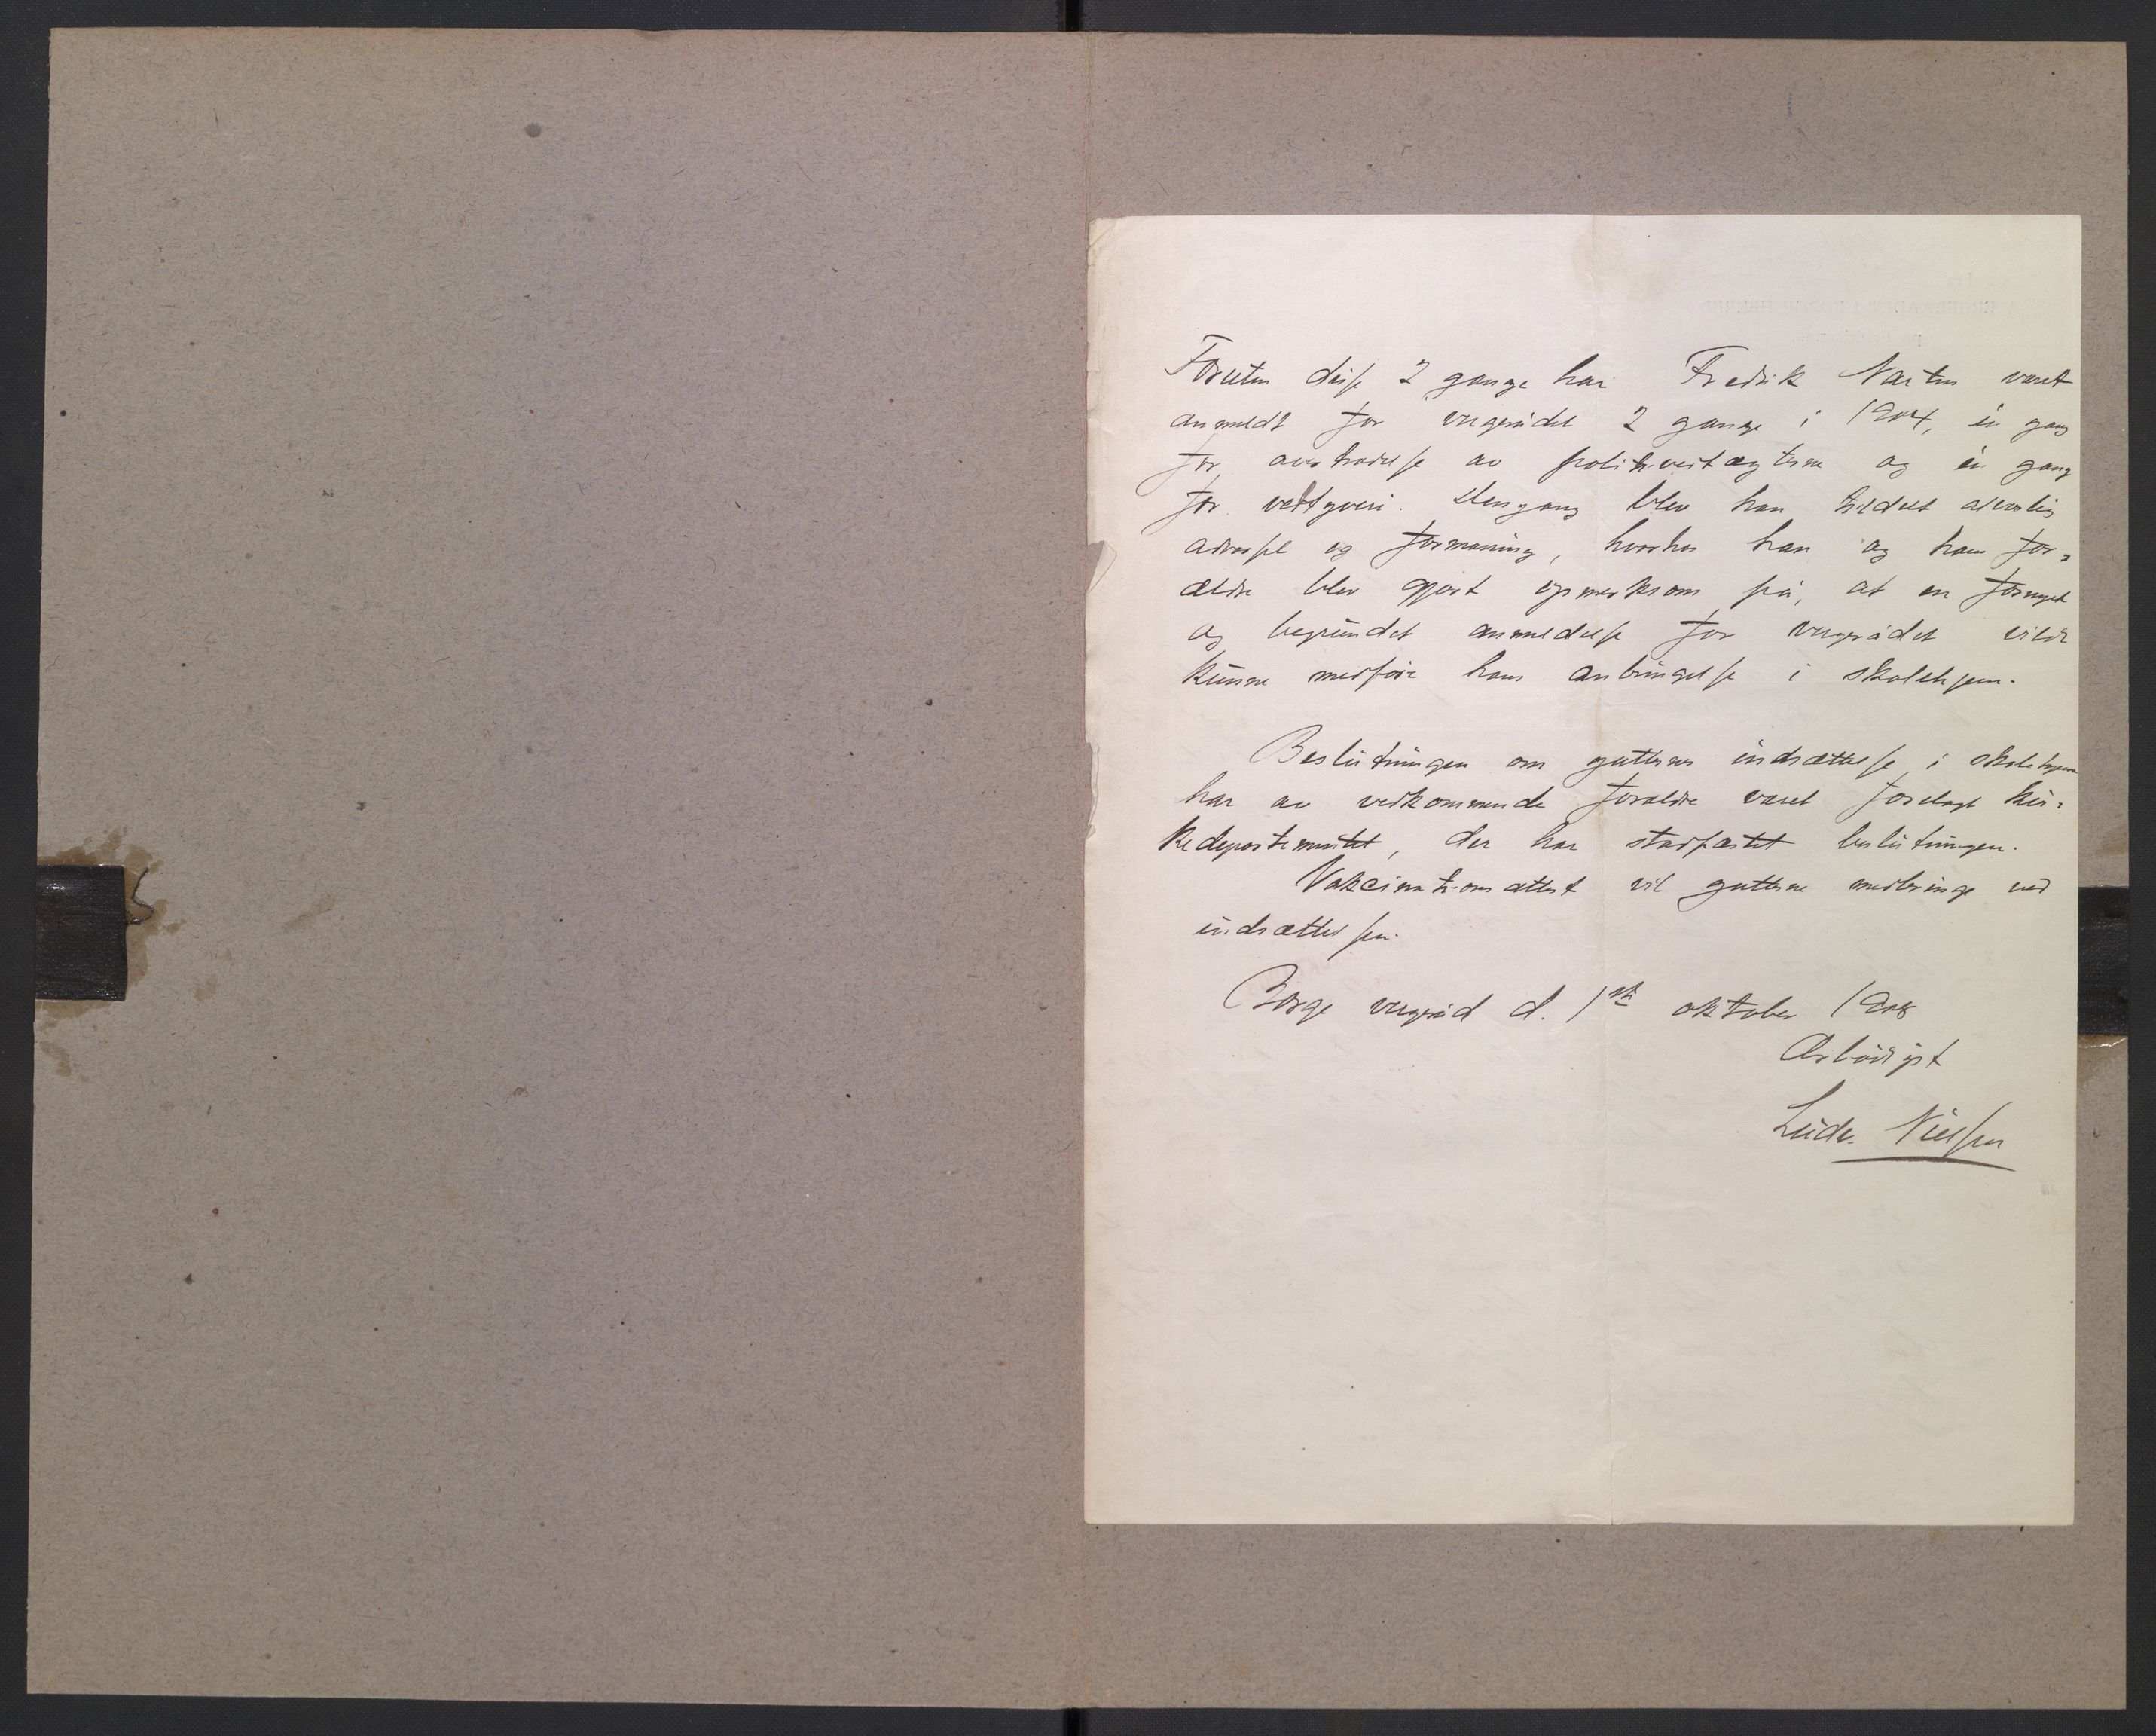 Foruten disse 2 gange har Fredrik Martin været
anmeldt for vergerådet 2 gange i 1904, én gang
for overtrædelse av politivedtægterne og én gang
for vedtyveri. Dengang blev han tildelt alvorlig
advarsel og formaning, hvorhos han og hans for=
ældre blev gjort opmerksom på, at en fornyet
og begrundet anmeldelse for vergerådet vilde
kunne medføre hans anbringelse i skolehjem.
Beslutningen om gutternes indsættelse i skolehjem
har av vedkommende forældre været forelagt kir=
kedepartementet, der har stadfæstet beslutningen.
Vakcinationsattest vil gutterne medbringe ved
indsættelsen.
Borge vergeråd d. 1ste oktober 1908
Ærbødigst
Nielsen